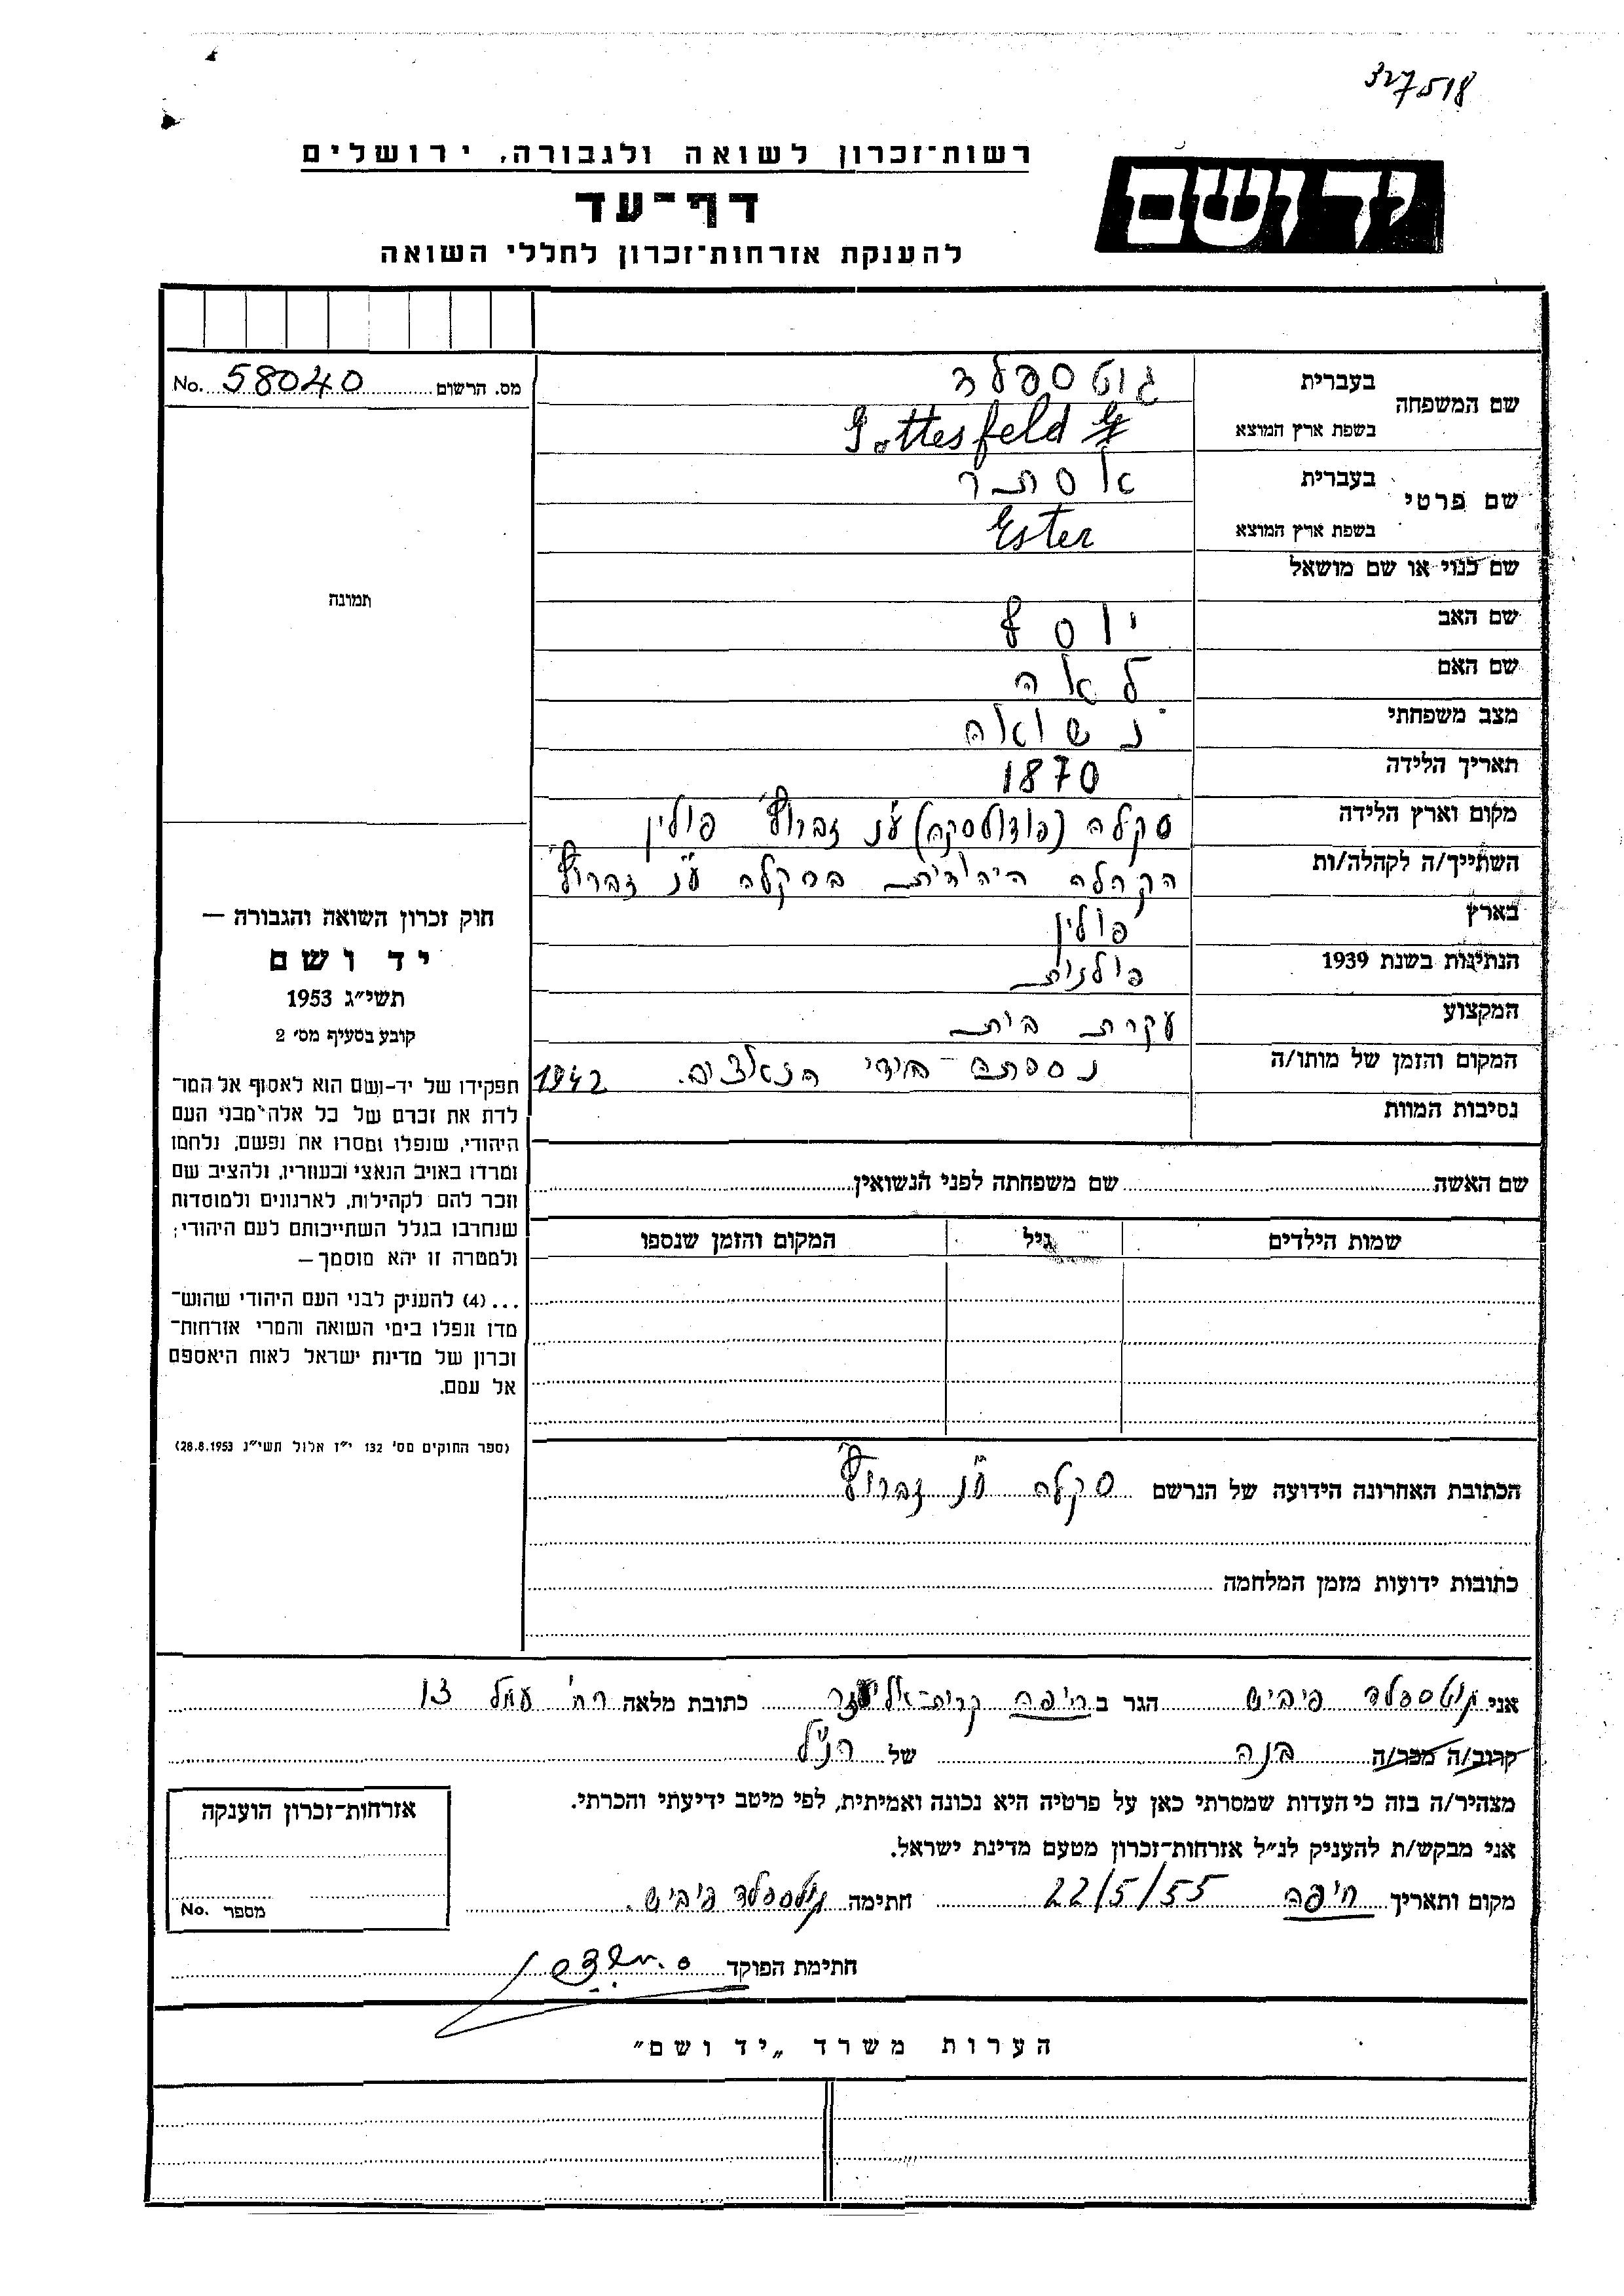 327518
רשות־זכרון לשואה ולגבורה, ירושלים
יד ושם
דף־עד
להענקת אזרחות־זכרון לחללי השואה
מס. הרשום 58040 No.
שם המשפחה בעברית גוטספלד
בשפת ארץ המוצא Gottesfeld
שם פרטי בעברית אסתר
בשפת ארץ המוצא Ester
שם כנוי או שם מושאל
תמונה
שם האב יוסף
שם האם לאה
מצב משפחתי נשואה
תאריך הלידה 1870
מקום וארץ הלידה סקלה (פודולסקה) ע"נ זברוץ' פולין
השתייך/ה לקהלה/ות הקהלה היהודית בסקלה ע"נ זברוץ'
בארץ פולין
הנתינות בשנת 1939 פולנית
המקצוע עקרת בית
המקום והזמן של מותו/ה נספתה בידי הנאצים. 1942
נסיבות המוות
חוק זכרון השואה והגבורה —
יד ושם
תשי״ג 1953
קובע בסעיף מס׳ 2
תפקידו של יד-ושם הוא לאסוף אל המו־
לדת את זכרם של כל אלה מבני העם
היהודי, שנפלו ומסרו את נפשם, נלחמו
ומרדו באויב הנאצי ובעוזריו, ולהציב שם
וזכר להם לקהילות, לארגונים ולמוסדות
שנחרבו בגלל השתייכותם לעם היהודי;
ולמטרה זו יהא מוסמך —
...(4) להעניק לבני העם היהודי שהוש־
מדו ונפלו בימי השואה והמרי אזרחות־
זכרון של מדינת ישראל לאות היאספם
אל עמם.
(ספר החוקים מס׳ 132 י״ז אלול תשי״ג 28.8.1953)
שם האשה שם משפחתה לפני הנשואין
שמות הילדים גיל המקום והזמן שנספו
הכתובת האחרונה הידועה של הנרשם סקלה ע"נ זברוץ'
כתובות ידועות מזמן המלחמה
אני גוטספלד פיביש הגר ב חיפה קרית-אליעזר כתובת מלאה רח' עמל 13
קרוב/ה מכר/ה בנה של הנ"ל
מצהיר/ה בזה כי העדות שמסרתי כאן על פרטיה היא נכונה ואמיתית, לפי מיטב ידיעתי והכרתי.
אני מבקש/ת להעניק לנ״ל אזרחות־זכרון מטעם מדינת ישראל.
מקום ותאריך חיפה 22/5/55 חתימה גוטספלד פיביש.
אזרחות־זכרון הוענקה
מספר No.
חתימת הפוקד
הערות משרד „יד ושם״